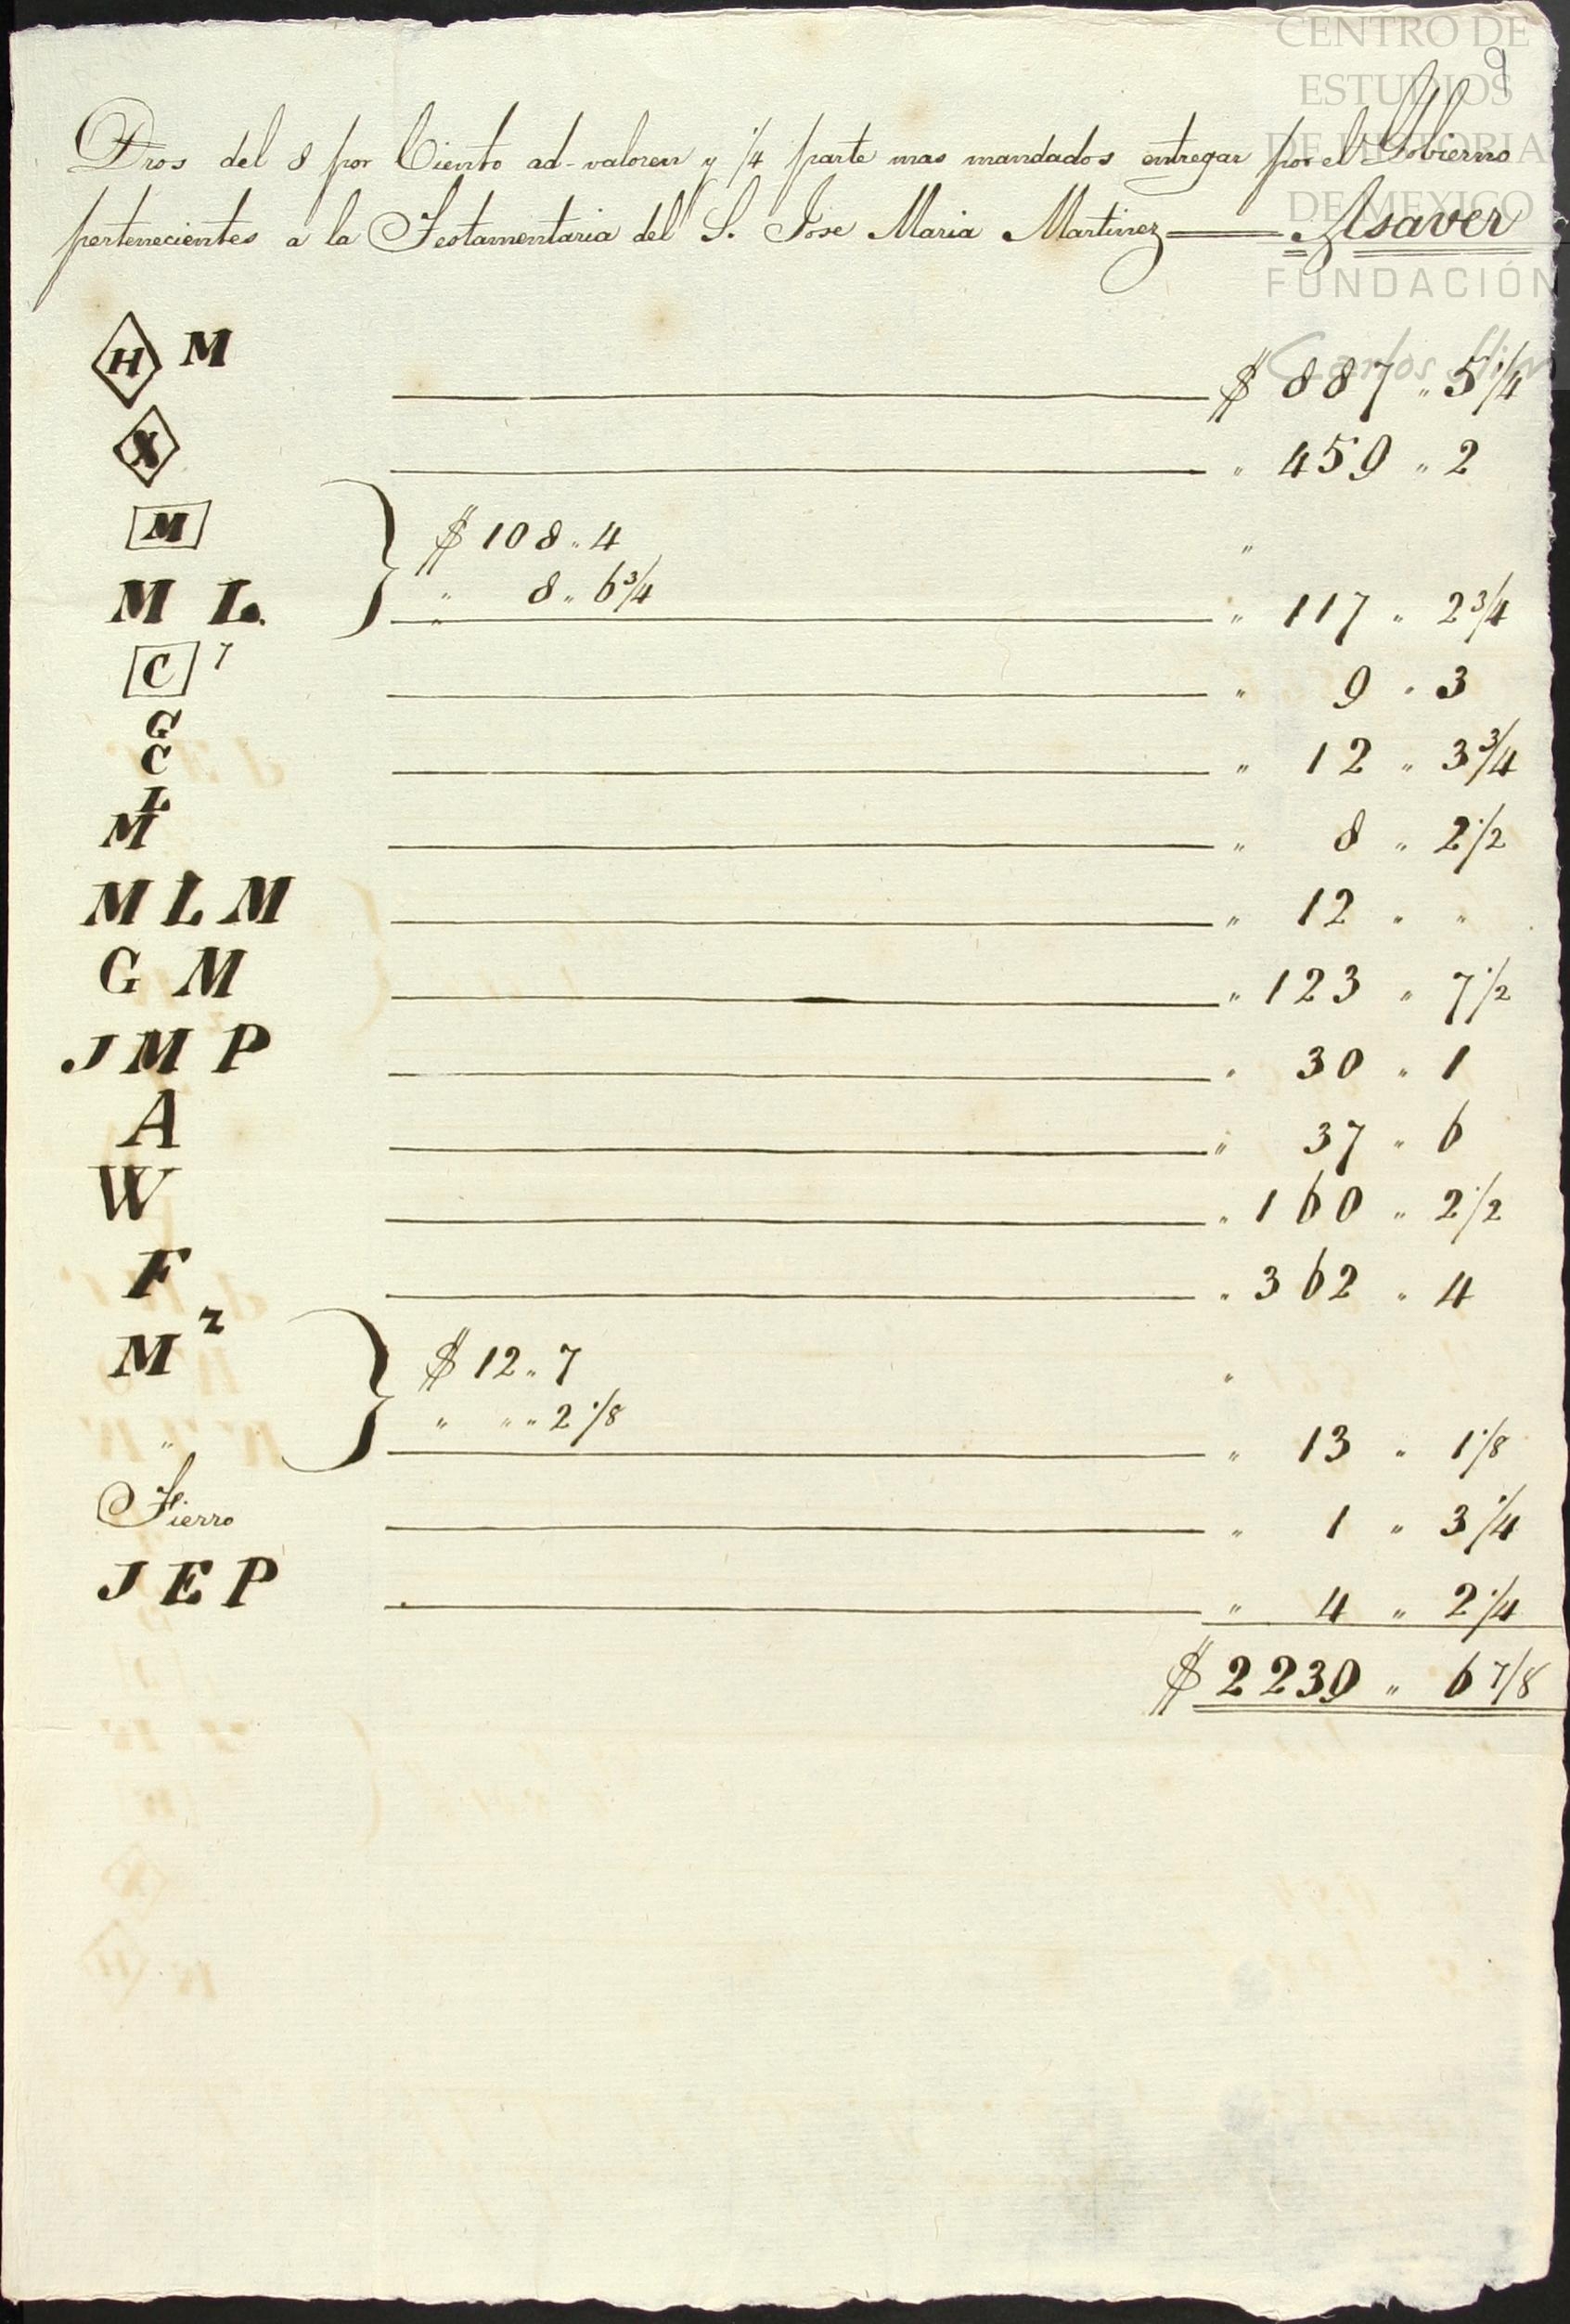 CENTRO DE
ESTUDIOS
DE HISTORIA
DE MEXICO
FUNDACIÓN
Carlos Slim
9
Dros del 8 por Ciento ad-valoren y 1/4 parte mas mandados entregar por el Gobierno
pertenecientes a la Testamentaria del S. Jose Maria Martinez Asaver
H M $ 887 " 5 1/4
X " 459 " 2
M $ 108 " 4 "
M L. " 8 " 6 3/4 " 117 " 2 3/4
C 7 " 9 " 3
G
C " 12 " 3 3/4
L
M " 8 " 2 1/2
M L M " 12 " "
G M " 123 " 7 1/2
J M P " 30 " 1
A " 37 " 6
W " 160 " 2 1/2
F " 362 " 4
M 2 $ 12 " 7 "
" " " " 2 1/8 " 13 " 1 1/8
Fierro " 1 " 3 1/4
J E P " 4 " 2 1/4
$ 2239 " 6 7/8